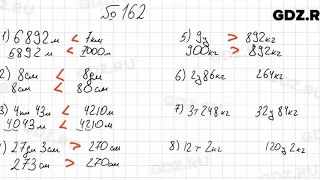 № 162
GDZ.RU
1) 6892м < 7км
6892м < 7000м
2) 8см < 8дм
8см < 80см
3) 4км 43м < 4210м
4043м < 4210м
4) 27дм 3см > 270см
273см > 270см
5) 9ц > 892кг
900кг > 892кг
6) 2ц 86кг 264кг
7) 3т 248кг 32ц 84кг
8) 12т 2кг 120ц 2кг